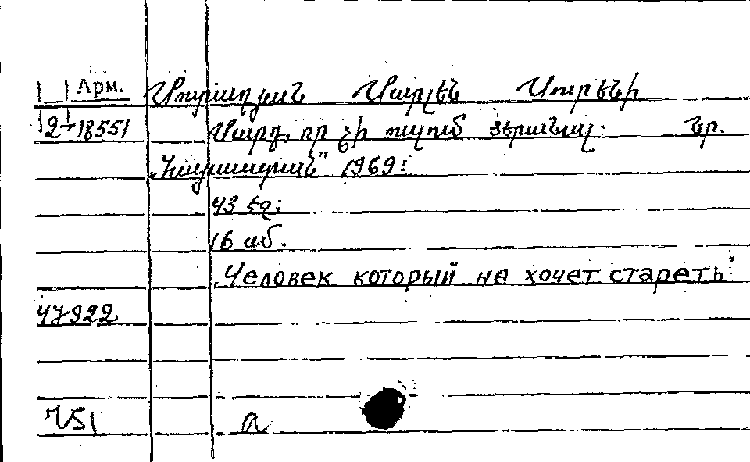 Арм. Մուրադյան Մարլեն Սուրենի
2-18551 Մարդ, որ չի ուզում ծերանալ. Եր.
„Հայաստան" 1969:
43 էջ:
16 սմ.
„Человек который не хочет стареть"
47922
751 а